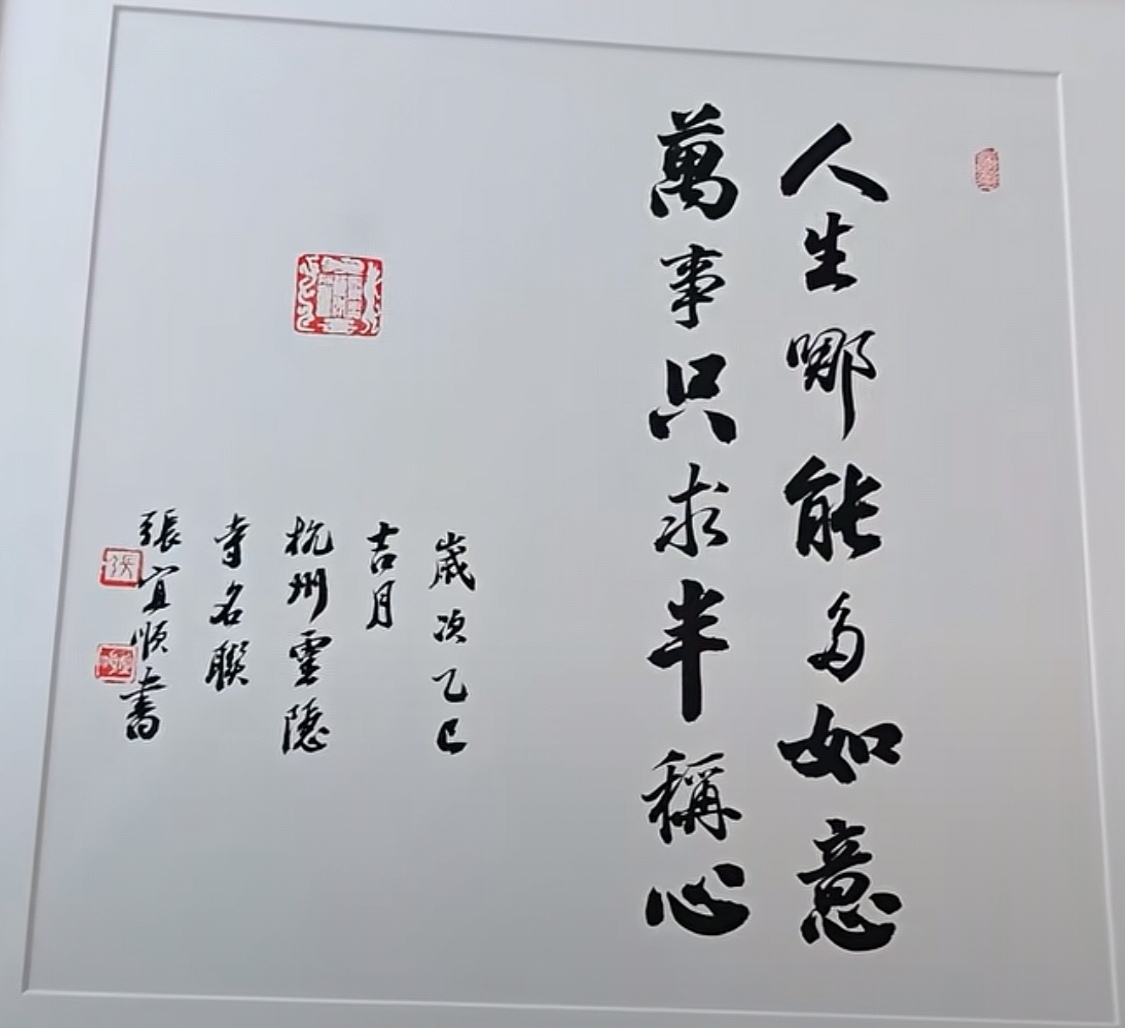 人生哪能多如意
萬事只求半稱心
歲次乙巳
吉月
杭州靈隱
寺名聯
張宜順書
張